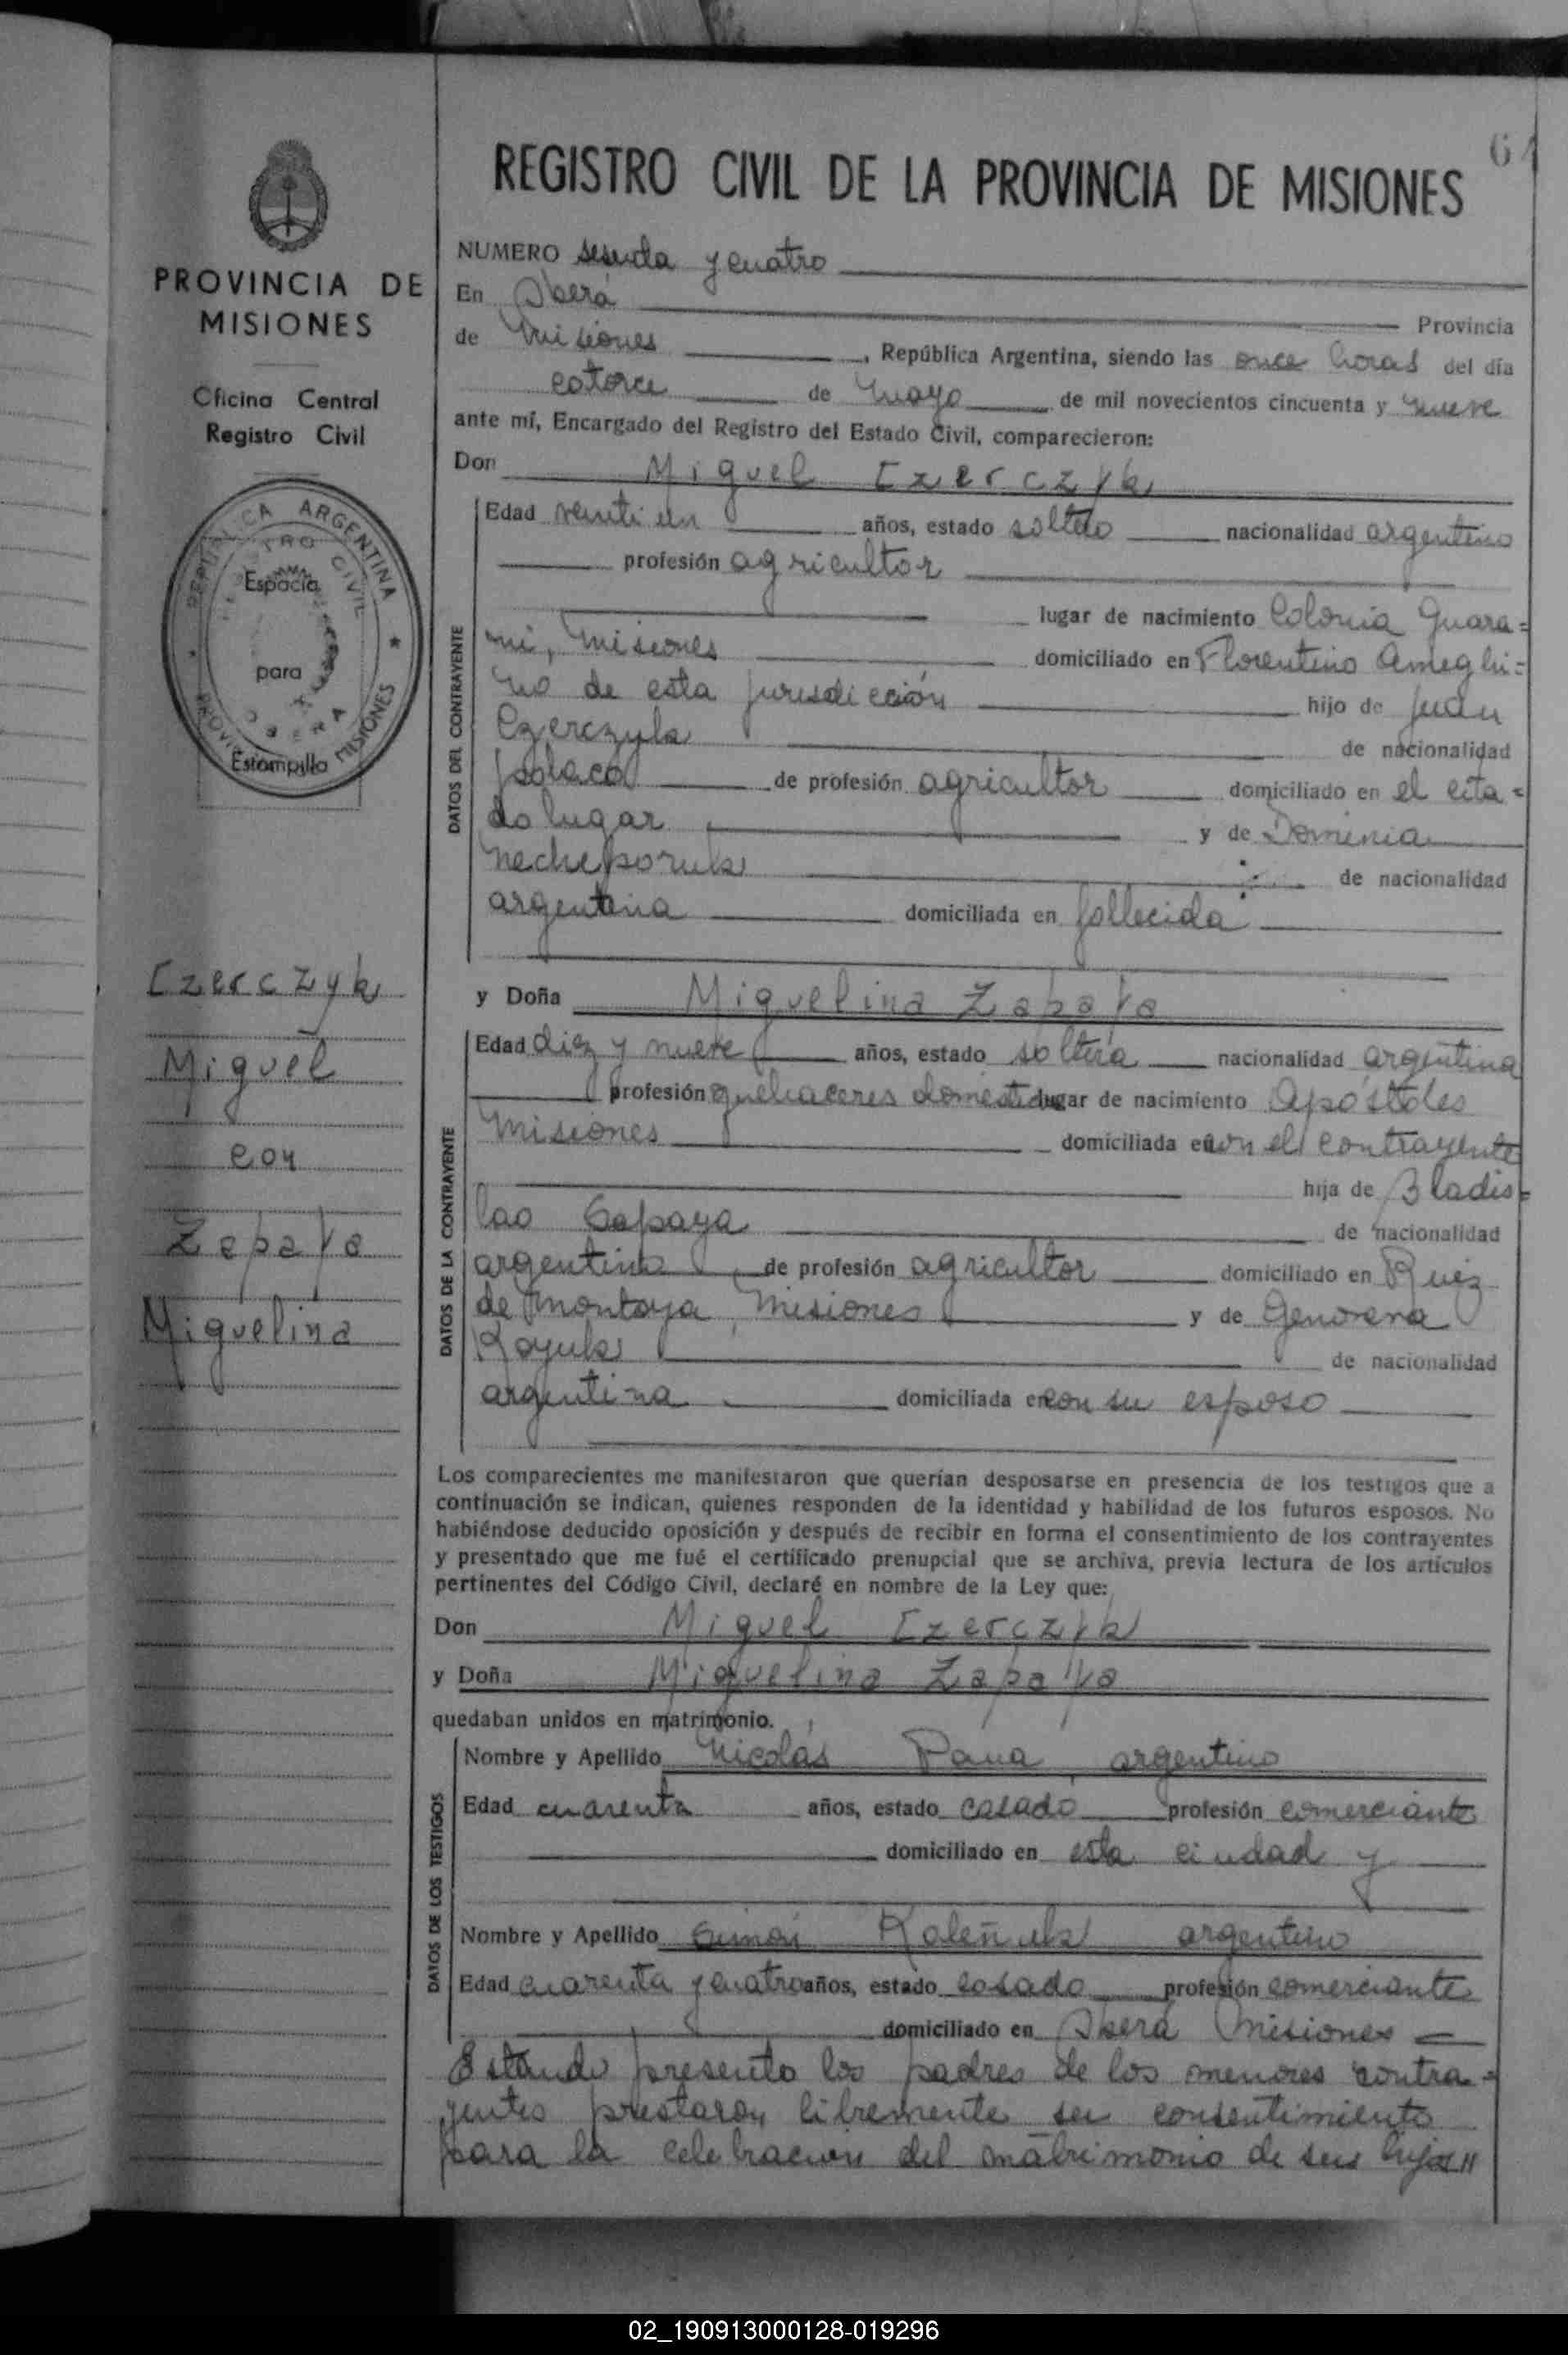 64
REGISTRO CIVIL DE LA PROVINCIA DE MISIONES
PROVINCIA DE
MISIONES
Oficina Central
Registro Civil
REPUBLICA ARGENTINA
PROVINCIA MISIONES
Espacio
para
Estampilla
Czerczyk
Miguel
con
Zapaya
Miguelina
NUMERO sesenta y cuatro
En Oberá Provincia
de Misiones , República Argentina, siendo las once horas del día
catorce de Mayo de mil novecientos cincuenta y nueve
ante mí, Encargado del Registro del Estado Civil, comparecieron:
Don Miguel Czerczyk
DATOS DEL CONTRAYENTE
Edad veinti un años, estado soltero nacionalidad argentino
profesión agricultor
lugar de nacimiento Colonia Guara=
ni, Misiones domiciliado en Florentino Ameghi=
no de esta jurisdicción hijo de Juan
Czerczyk de nacionalidad
polaca de profesión agricultor domiciliado en el cita=
do lugar y de Dominia
Necheporuk de nacionalidad
argentina domiciliada en fallecida
y Doña Miguelina Zapaya
DATOS DE LA CONTRAYENTE
Edad diez y nueve años, estado soltera nacionalidad argentina
profesión quehaceres domesticos lugar de nacimiento Apóstoles
Misiones domiciliada en con el contrayente
hija de Bladis=
lao Sapaya de nacionalidad
argentina de profesión agricultor domiciliado en Ruiz
de Montoya, Misiones y de Genoveva
Koyuk de nacionalidad
argentina domiciliada en con su esposo
Los comparecientes me manifestaron que querían desposarse en presencia de los testigos que a
continuación se indican, quienes responden de la identidad y habilidad de los futuros esposos. No
habiéndose deducido oposición y después de recibir en forma el consentimiento de los contrayentes
y presentado que me fué el certificado prenupcial que se archiva, previa lectura de los artículos
pertinentes del Código Civil, declaré en nombre de la Ley que:
Don Miguel Czerczyk
y Doña Miguelina Zapaya
quedaban unidos en matrimonio.
DATOS DE LOS TESTIGOS
Nombre y Apellido Nicolás Pana, argentino
Edad cuarenta años, estado casado profesión comerciante
domiciliado en esta ciudad y
Nombre y Apellido Simón Koleñuk argentino
Edad cuarenta y cuatro años, estado casado profesión comerciante
domiciliado en Oberá Misiones =
Estando presente los padres de los menores contra=
yentes prestaron libremente su consentimiento
para la celebración del matrimonio de sus hijos //
02_190913000128-019296